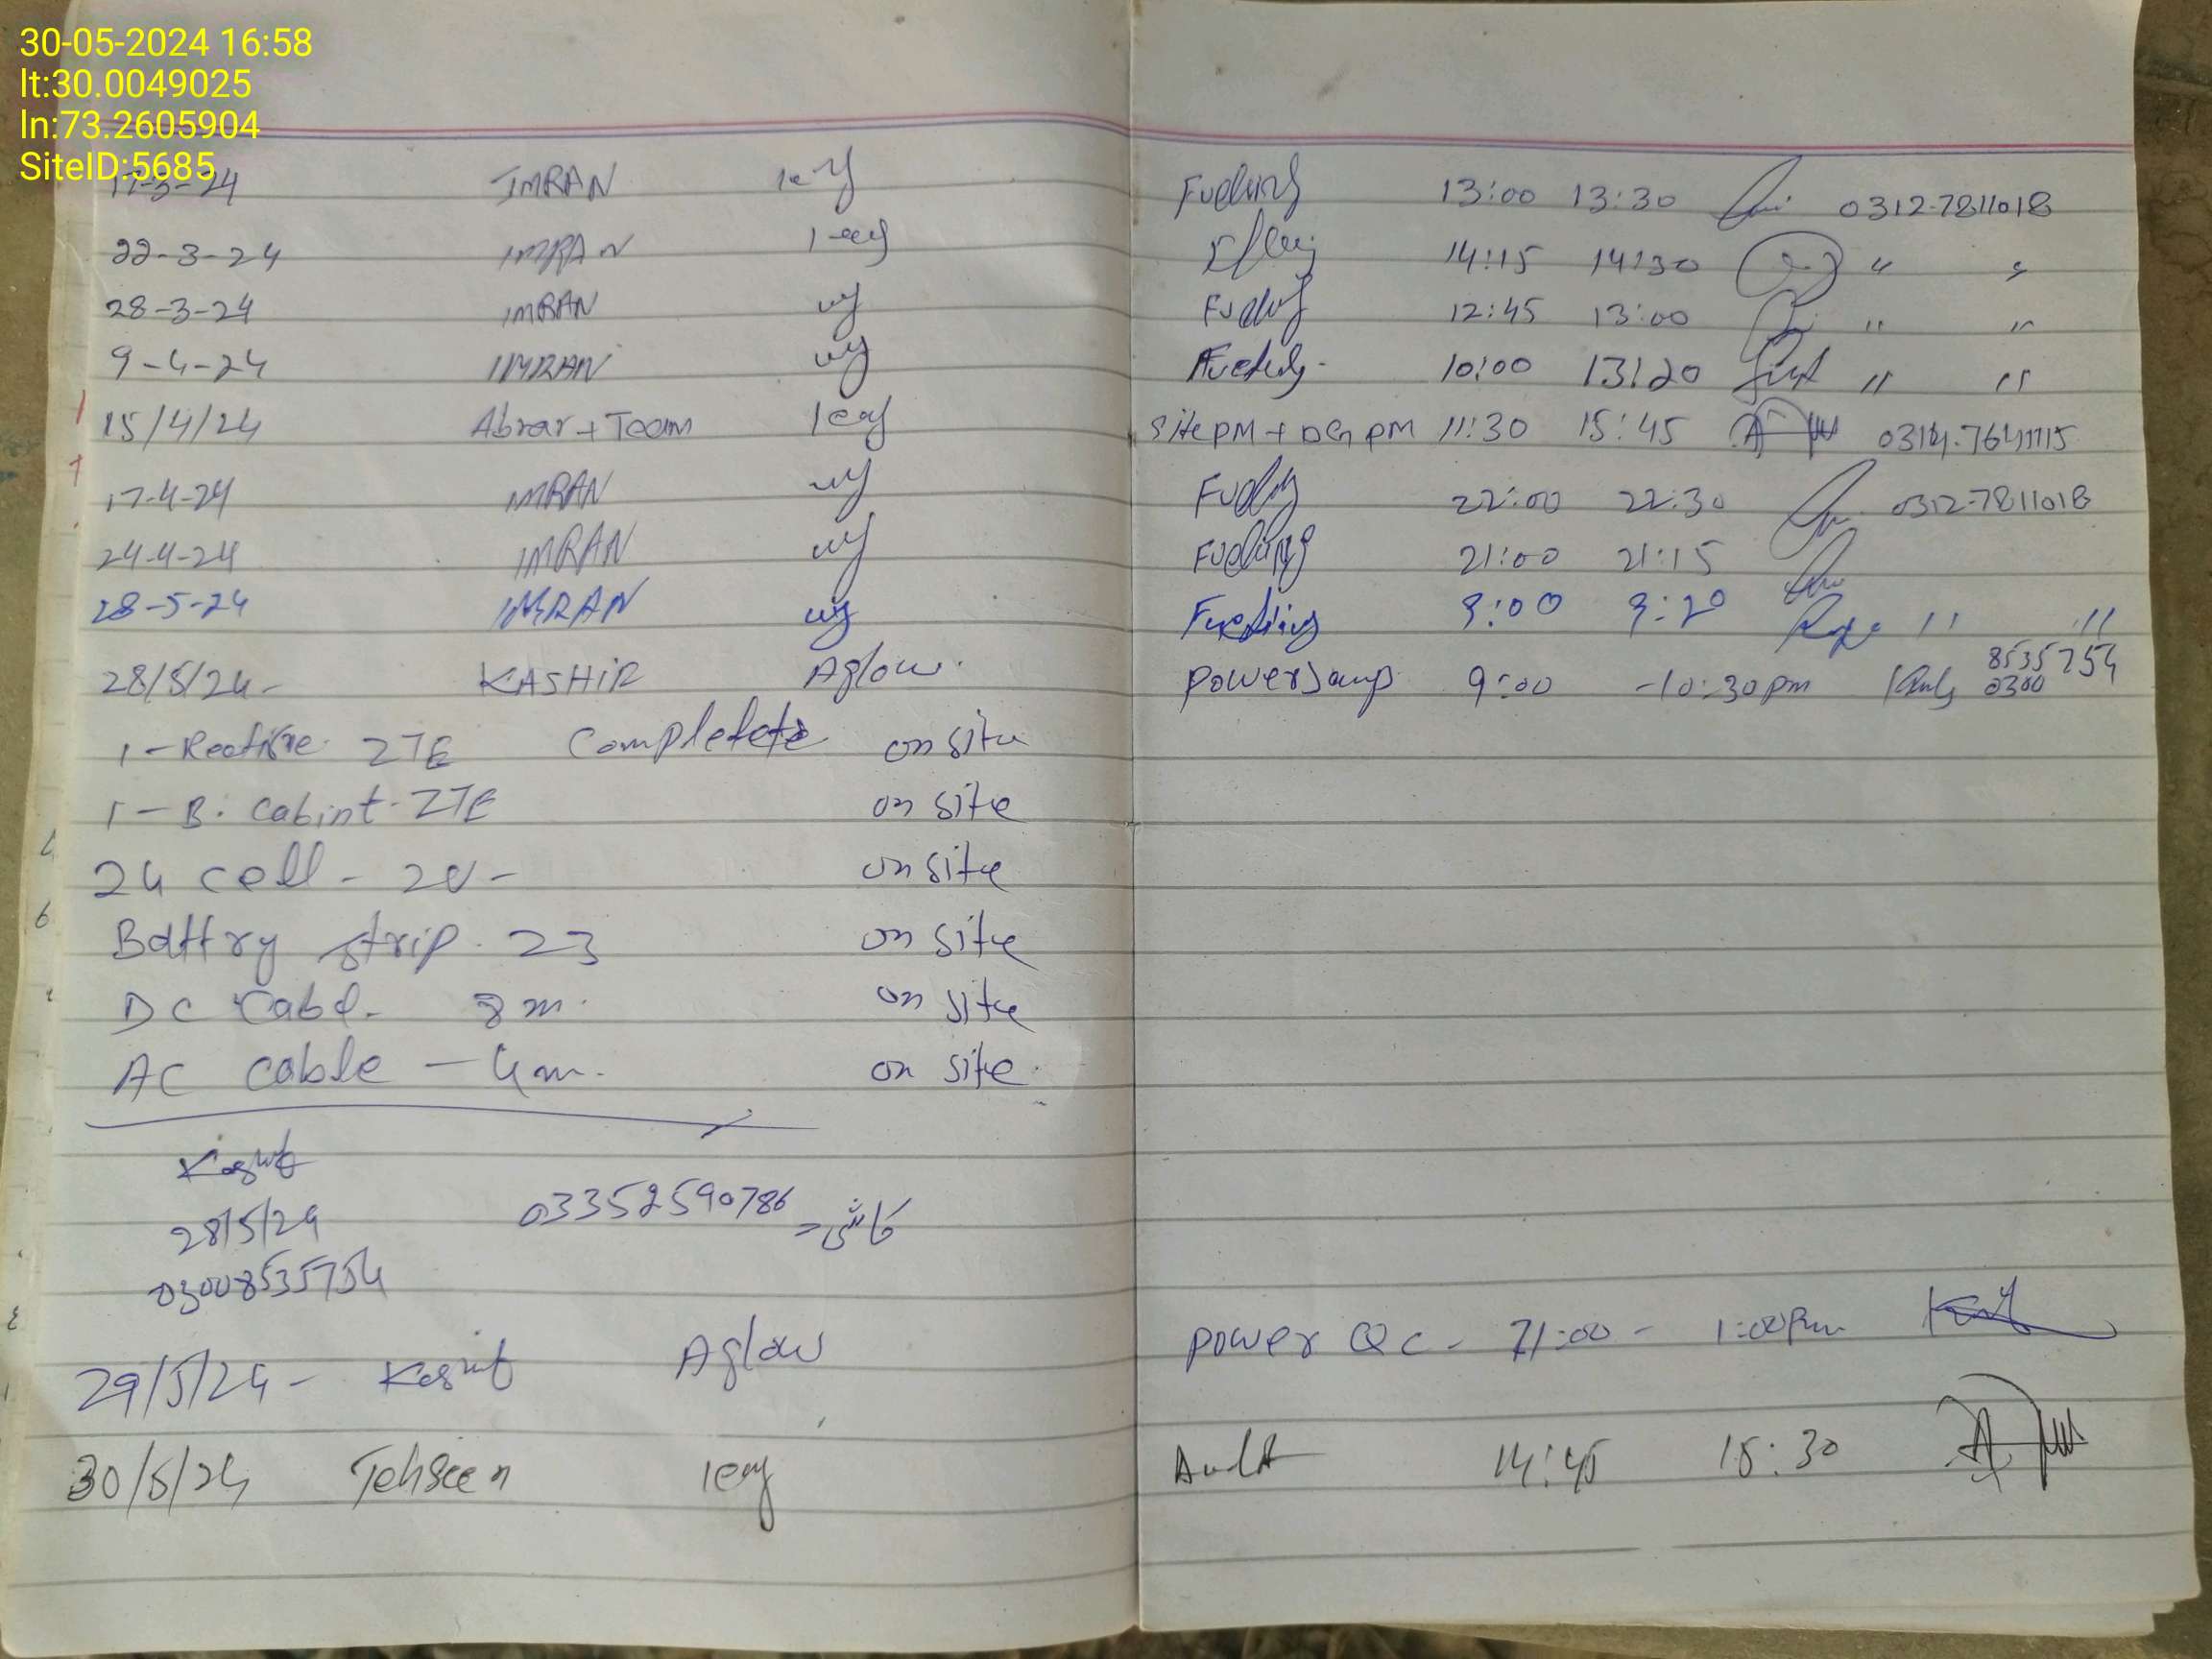 30-05-2024 16:58
lt:30.0049025
ln:73.2605904
SiteID:5685
17-3-24 IMRAN Fueling 13:00 13:30 0312-7811018
22-3-24 IMRAN 14:15 14:30 " "
28-3-24 IMRAN Fueling 12:45 13:00 " "
9-4-24 IMRAN Fueling- 10:00 13:20 " "
15/4/24 Abrar + Team Site PM + DG PM 11:30 15:45
17-4-24 IMRAN Fueling 22:00 22:30 0312-7811018
24-4-24 IMRAN Fueling 21:00 21:15
28-5-24 IMRAN Fueling 9:00 9:20 " "
28/5/24- KASHIR Aglow. power 9:00 -10:30pm 0300 8535754
1- ZTE on site
1- B. Cabint- ZTE on site
24 cell - 2V- on site
Battry strip. 23 on site
DC Cabl- 8m. on site
AC Cable - 4m. on site.
Kashif
28/5/24 03352590786
03008535754
29/5/24- Kashif Aglow power QC- 1:00Pm
30/5/24 Tehseen Audit 14:45 15:30